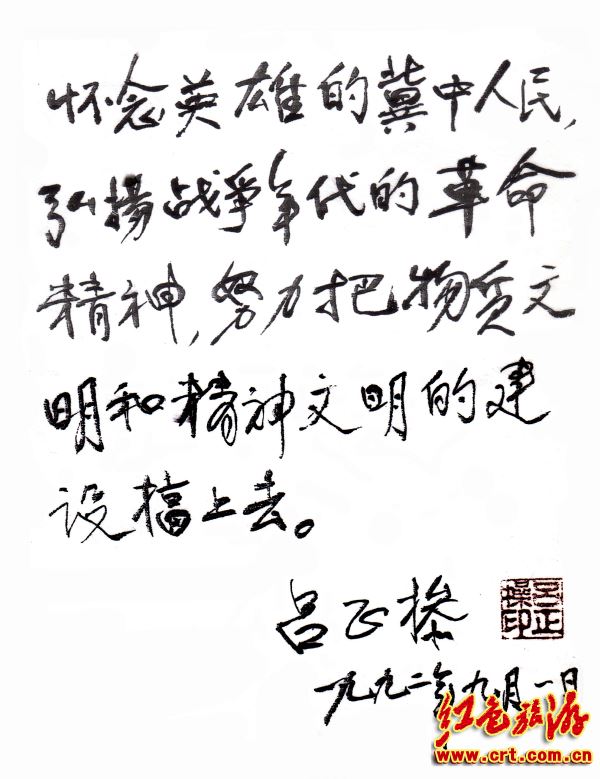 怀念英雄的冀中人民,
弘揚战爭年代的革命
精神,努力把物质文
明和精神文明的建
设搞上去。
吕正操
吕正操印
一九九二年九月一日
红色旅游
www.crt.com.cn